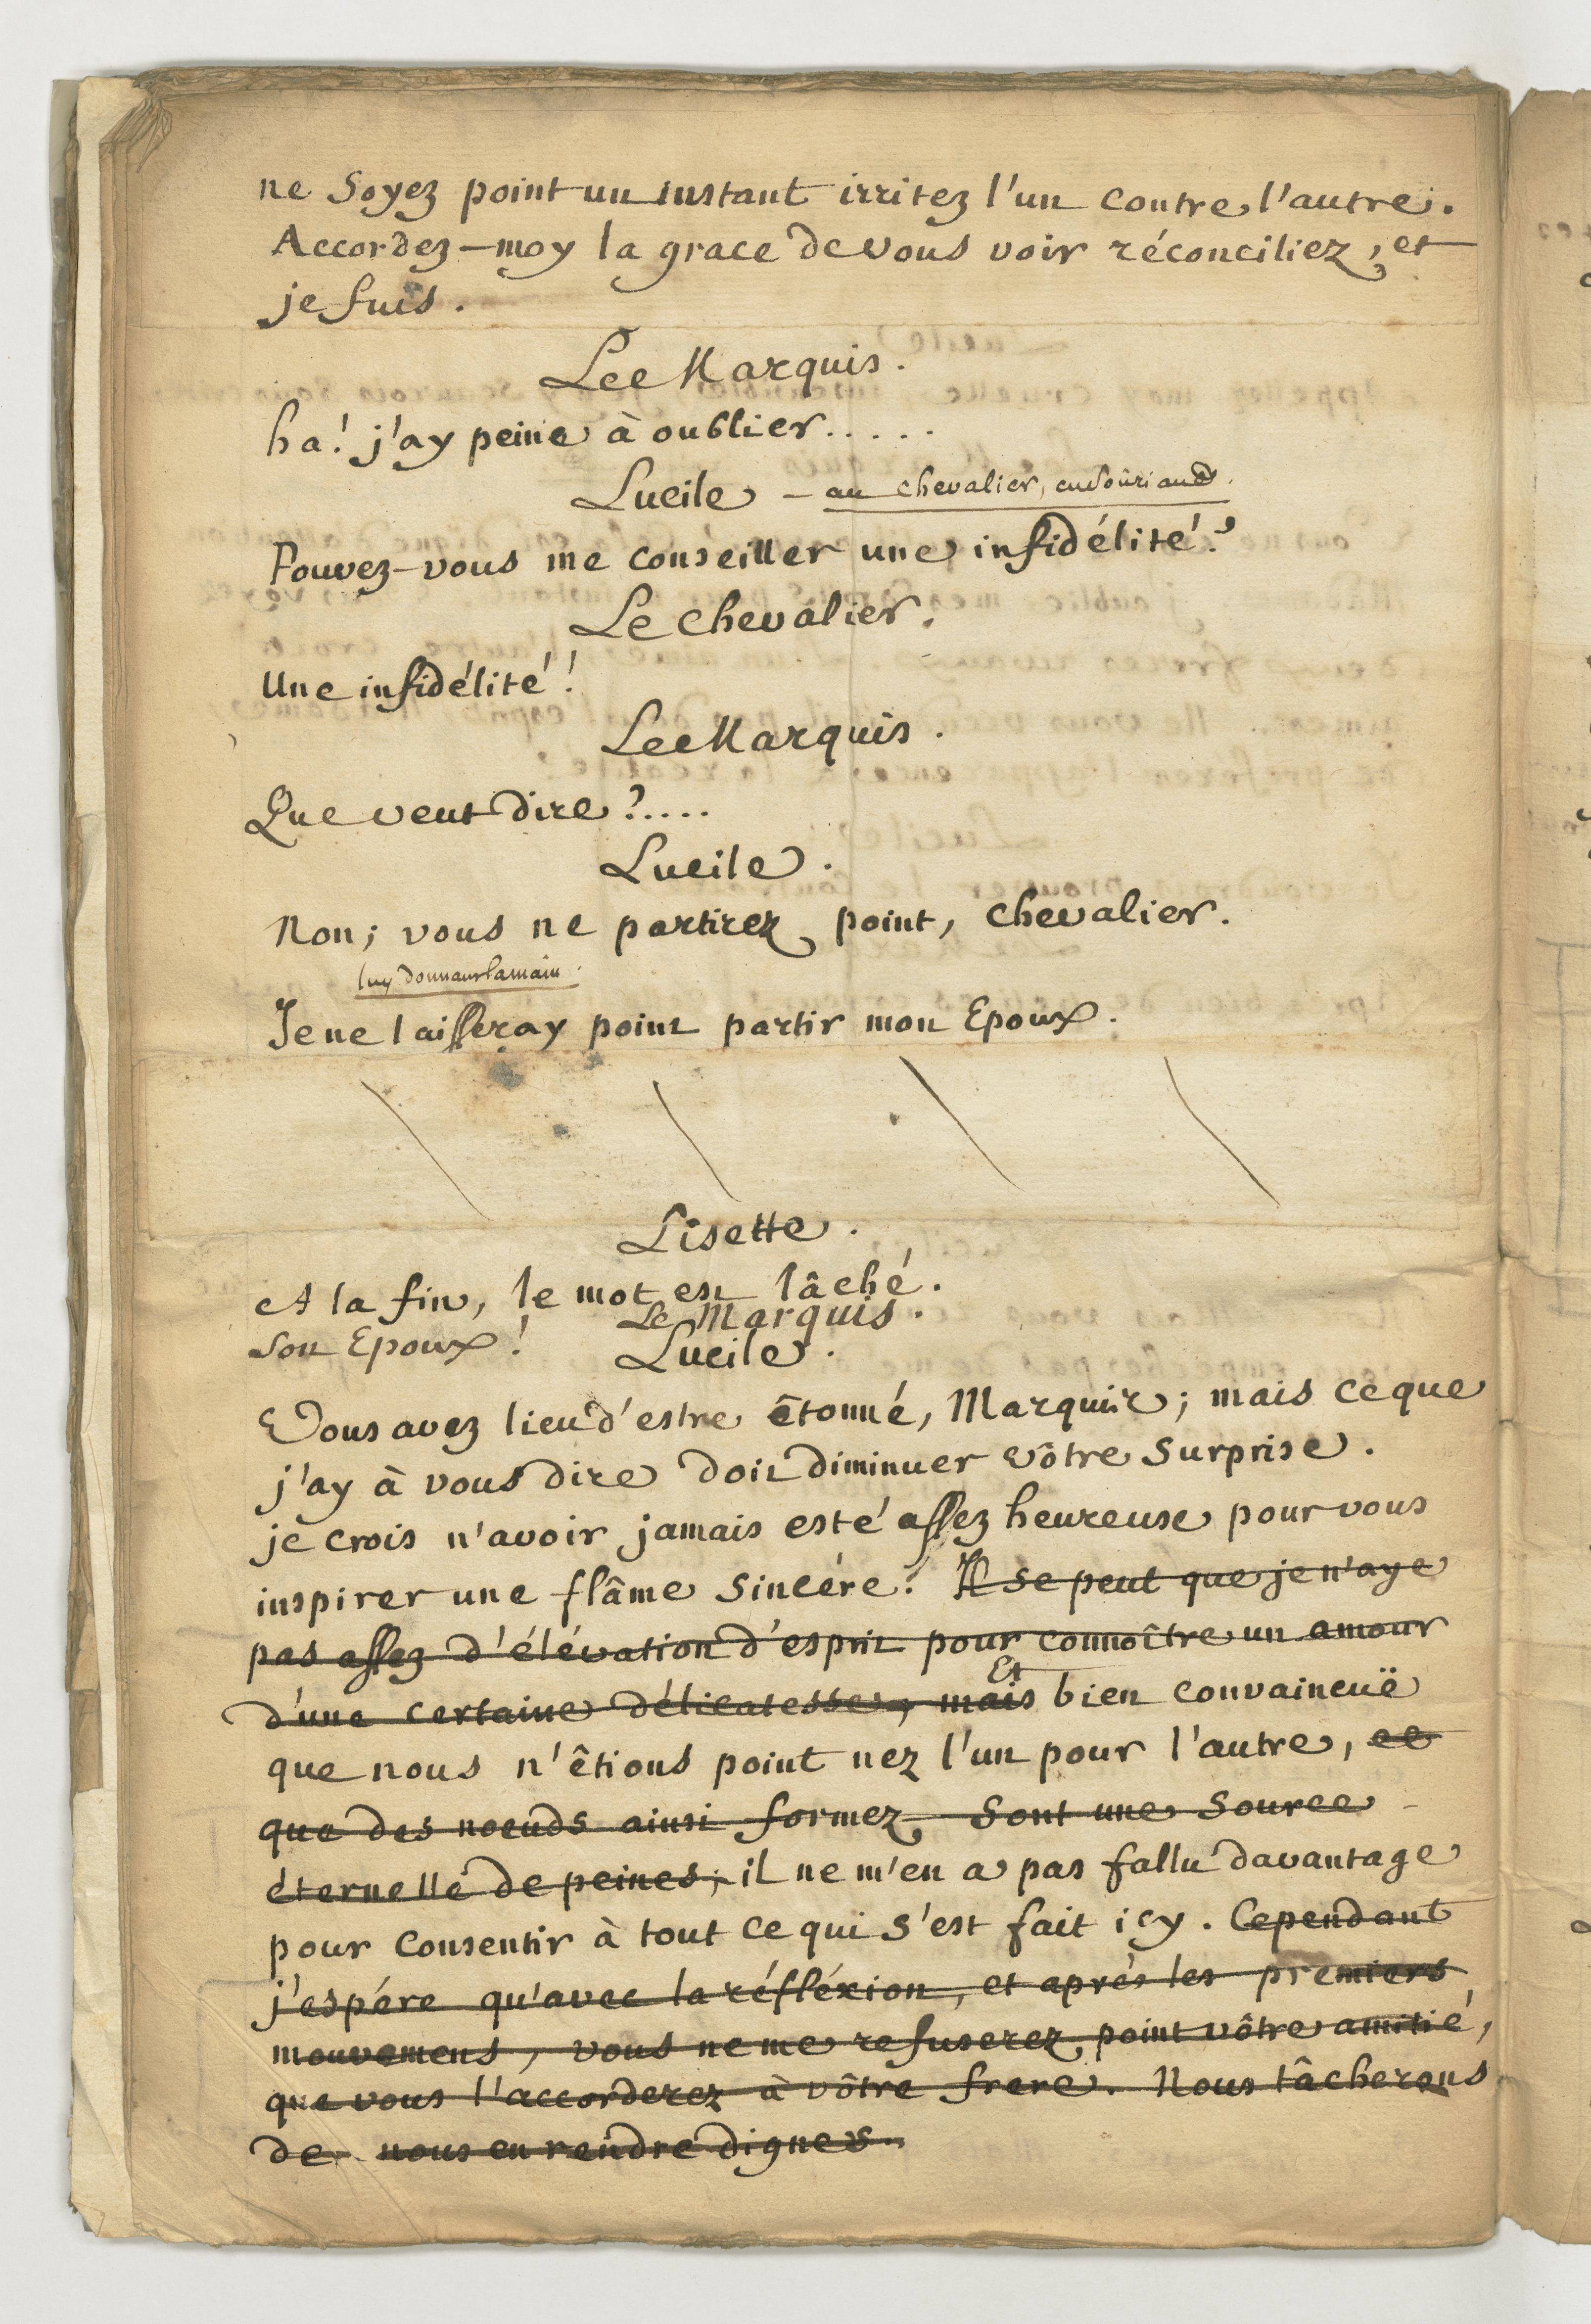 ne soyez point un instant irritez l'un contre l'autre.
Accordez-moy la grace de vous voir réconciliez, et
je fuis.
Le Marquis.
ha! j'ay peine à oublier.....
Lucile - au chevalier, en soûriand.
Pouvez-vous me conseiller une infidélité?
Le chevalier.
Une infidélité!
Le Marquis.
Que veut dire?....
Lucile.
Non; vous ne partirez point, chevalier.
luy donnant la main.
Je ne laisseray point partir mon Epoux.
Lisette.
A la fin, le mot est lâché.
Le Marquis.
Son Epoux!
Lucile.
Vous avez lieu d'estre étonné, Marquis; mais ce que
j'ay à vous dire doit diminuer vôtre surprise.
je crois n'avoir jamais esté assez heureuse pour vous
inspirer une flâme sincére. Il se peut que je n'aye
pas assez d'élévation d'esprit pour connoître un amour
Et
d'une certaine délicatesse, mais bien convaincuë
que nous n'êtions point nez l'un pour l'autre, et
que des noeuds ainsi formez sont une source
éternelle de peines; il ne m'en a pas fallu davantage
pour consentir à tout ce qui s'est fait icy. Cependant
j'espére qu'avec la réfléxion, et aprés les premiers
mouvemens, vous ne me refuserez point vôtre amitié,
que vous l'accorderez à vôtre frere. Nous tâcherons
de nous en rendre dignes.